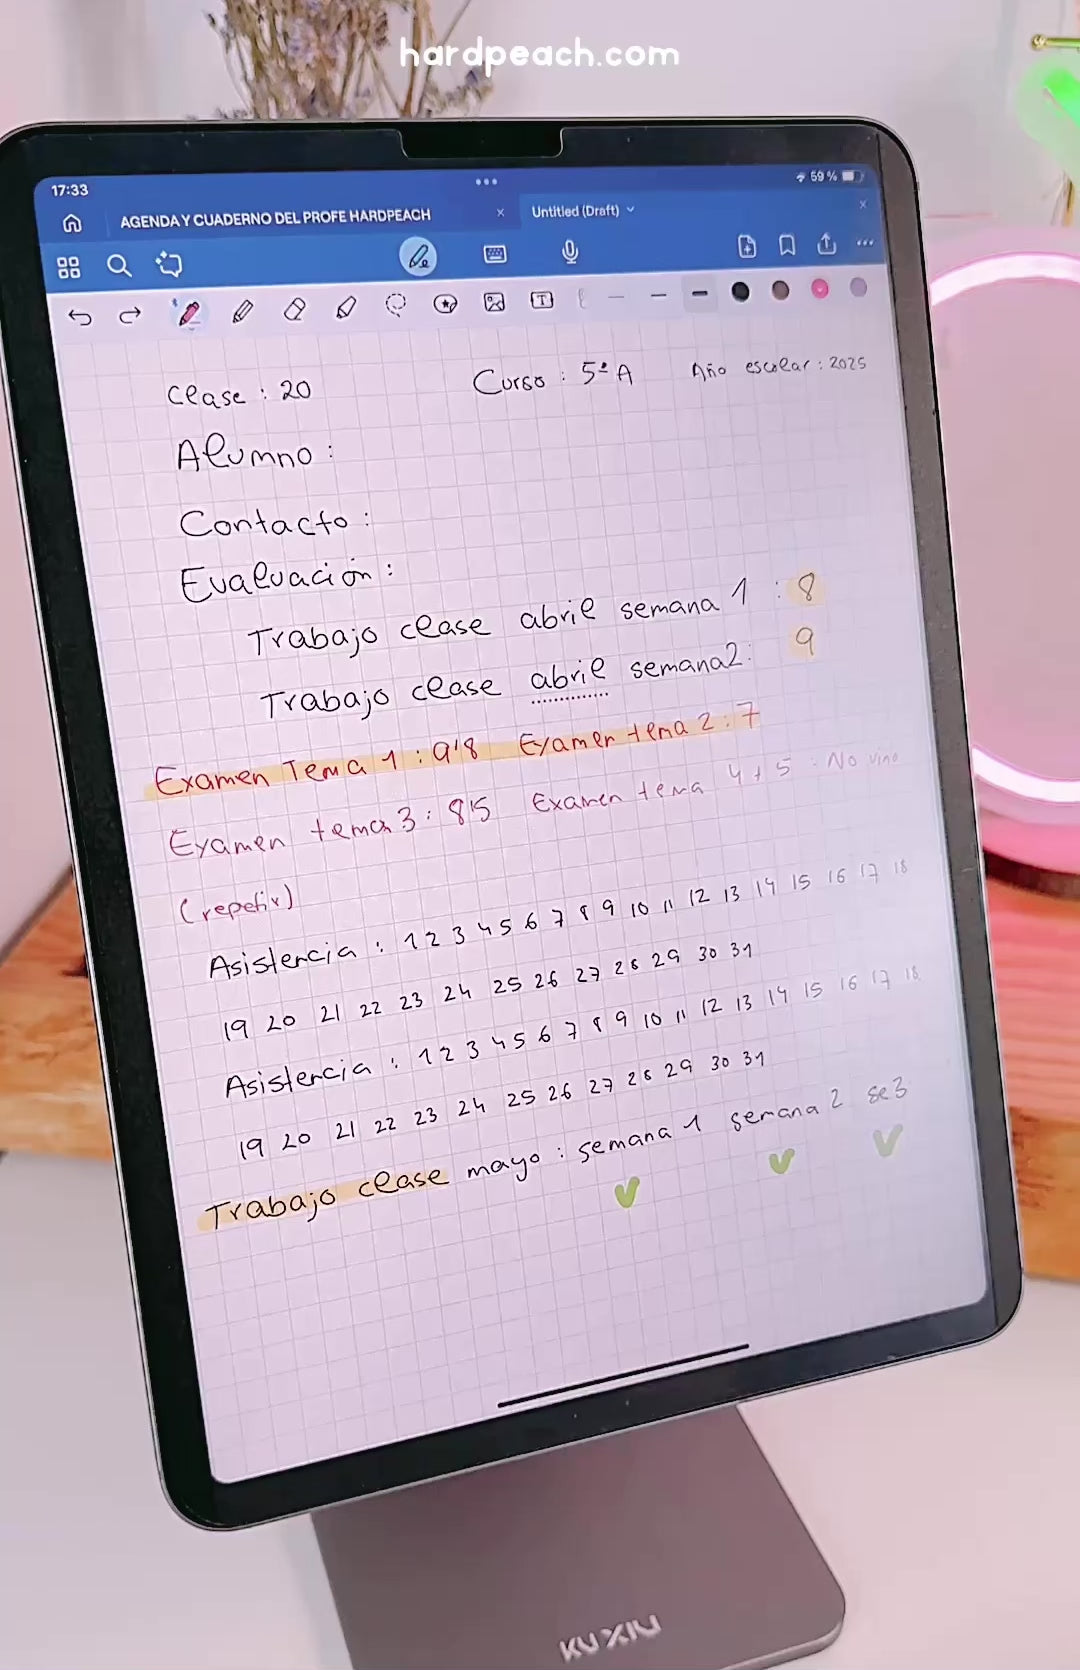 hardpeach.com
17:33
59 %
AGENDA Y CUADERNO DEL PROFE HARDPEACH
Untitled (Draft)
Clase : 20 Curso : 5º A Año escolar : 2025
Alumno :
Contacto :
Evaluación :
Trabajo clase abril semana 1 : 8
Trabajo clase abril semana2: 9
Examen Tema 1 : 9'8 Examen tema 2 : 7
Examen tema 3 : 8'5 Examen tema 4 + 5 : No vino
(repetir)
Asistencia : 1 2 3 4 5 6 7 8 9 10 11 12 13 14 15 16 17 18
19 20 21 22 23 24 25 26 27 28 29 30 31
Asistencia : 1 2 3 4 5 6 7 8 9 10 11 12 13 14 15 16 17 18
19 20 21 22 23 24 25 26 27 28 29 30 31
Trabajo clase mayo : semana 1 semana 2 se3
KUXIU